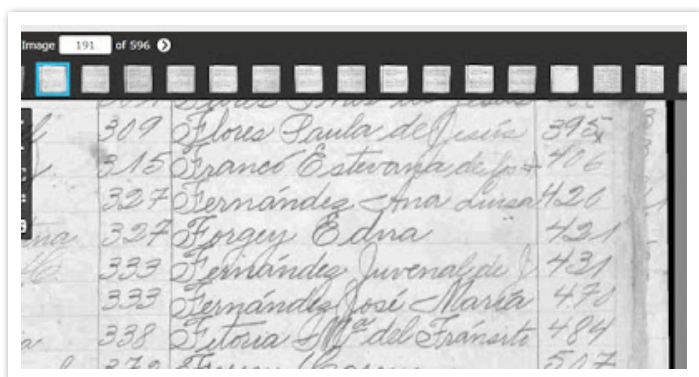 Image 191 of 596
309 Flores Paula de Jesús 395
315 Franco Estevana de 406
327 Fernández Ana Luisa 420
327 Forgey Edna 421
333 Fernández Juvenal de J 431
333 Fernández José María 470
338 Fitoria Mª del Tránsito 484
372 507